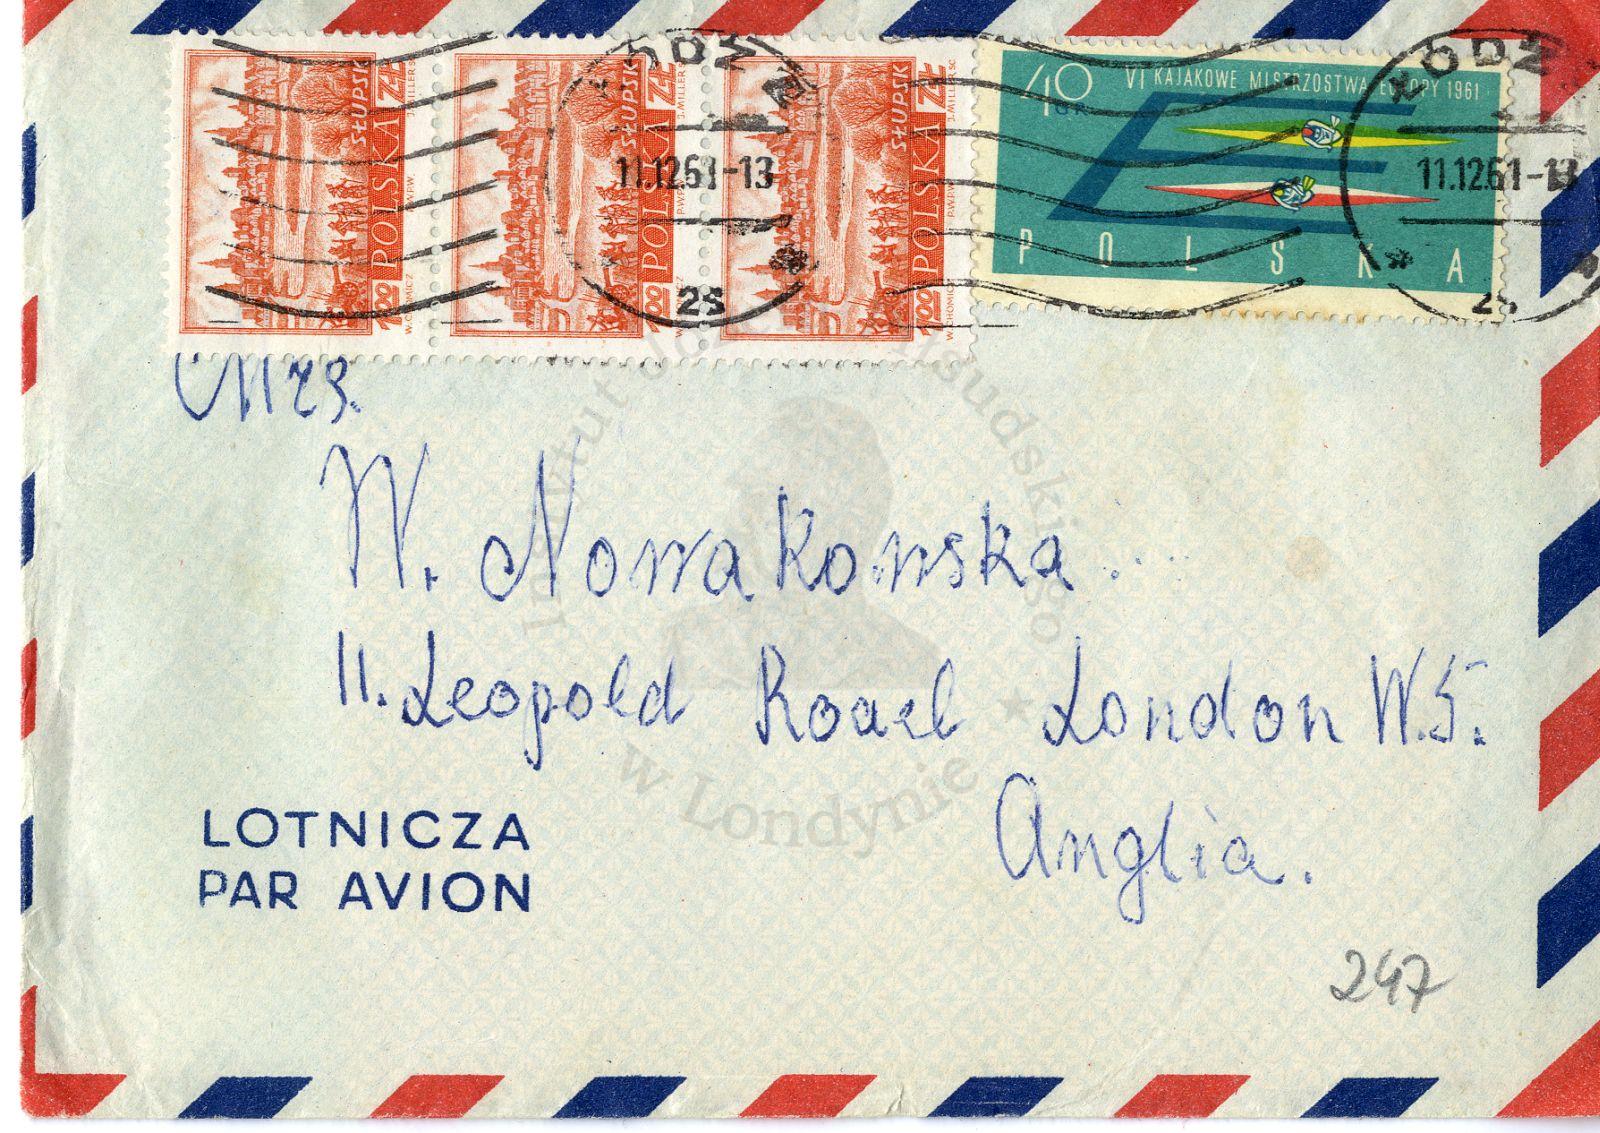 SŁUPSK 1.00 POLSKA ZŁ
W. CHOMICZ P.W.P.W. J. MILLER SC.
SŁUPSK 1.00 POLSKA ZŁ
W. CHOMICZ P.W.P.W. J. MILLER SC.
SŁUPSK 1.00 POLSKA ZŁ
W. CHOMICZ P.W.P.W. J. MILLER SC.
40 GR VI KAJAKOWE MISTRZOSTWA EUROPY 1961
POLSKA
ŁÓDŹ 2
11.12.61-13
2s
ŁÓDŹ
11.12.61-13
2s
Mrs.
W. Nowakowska
11. Leopold Road London W.5.
Anglia.
LOTNICZA
PAR AVION
247
Instytut Piłsudskiego
w Londynie